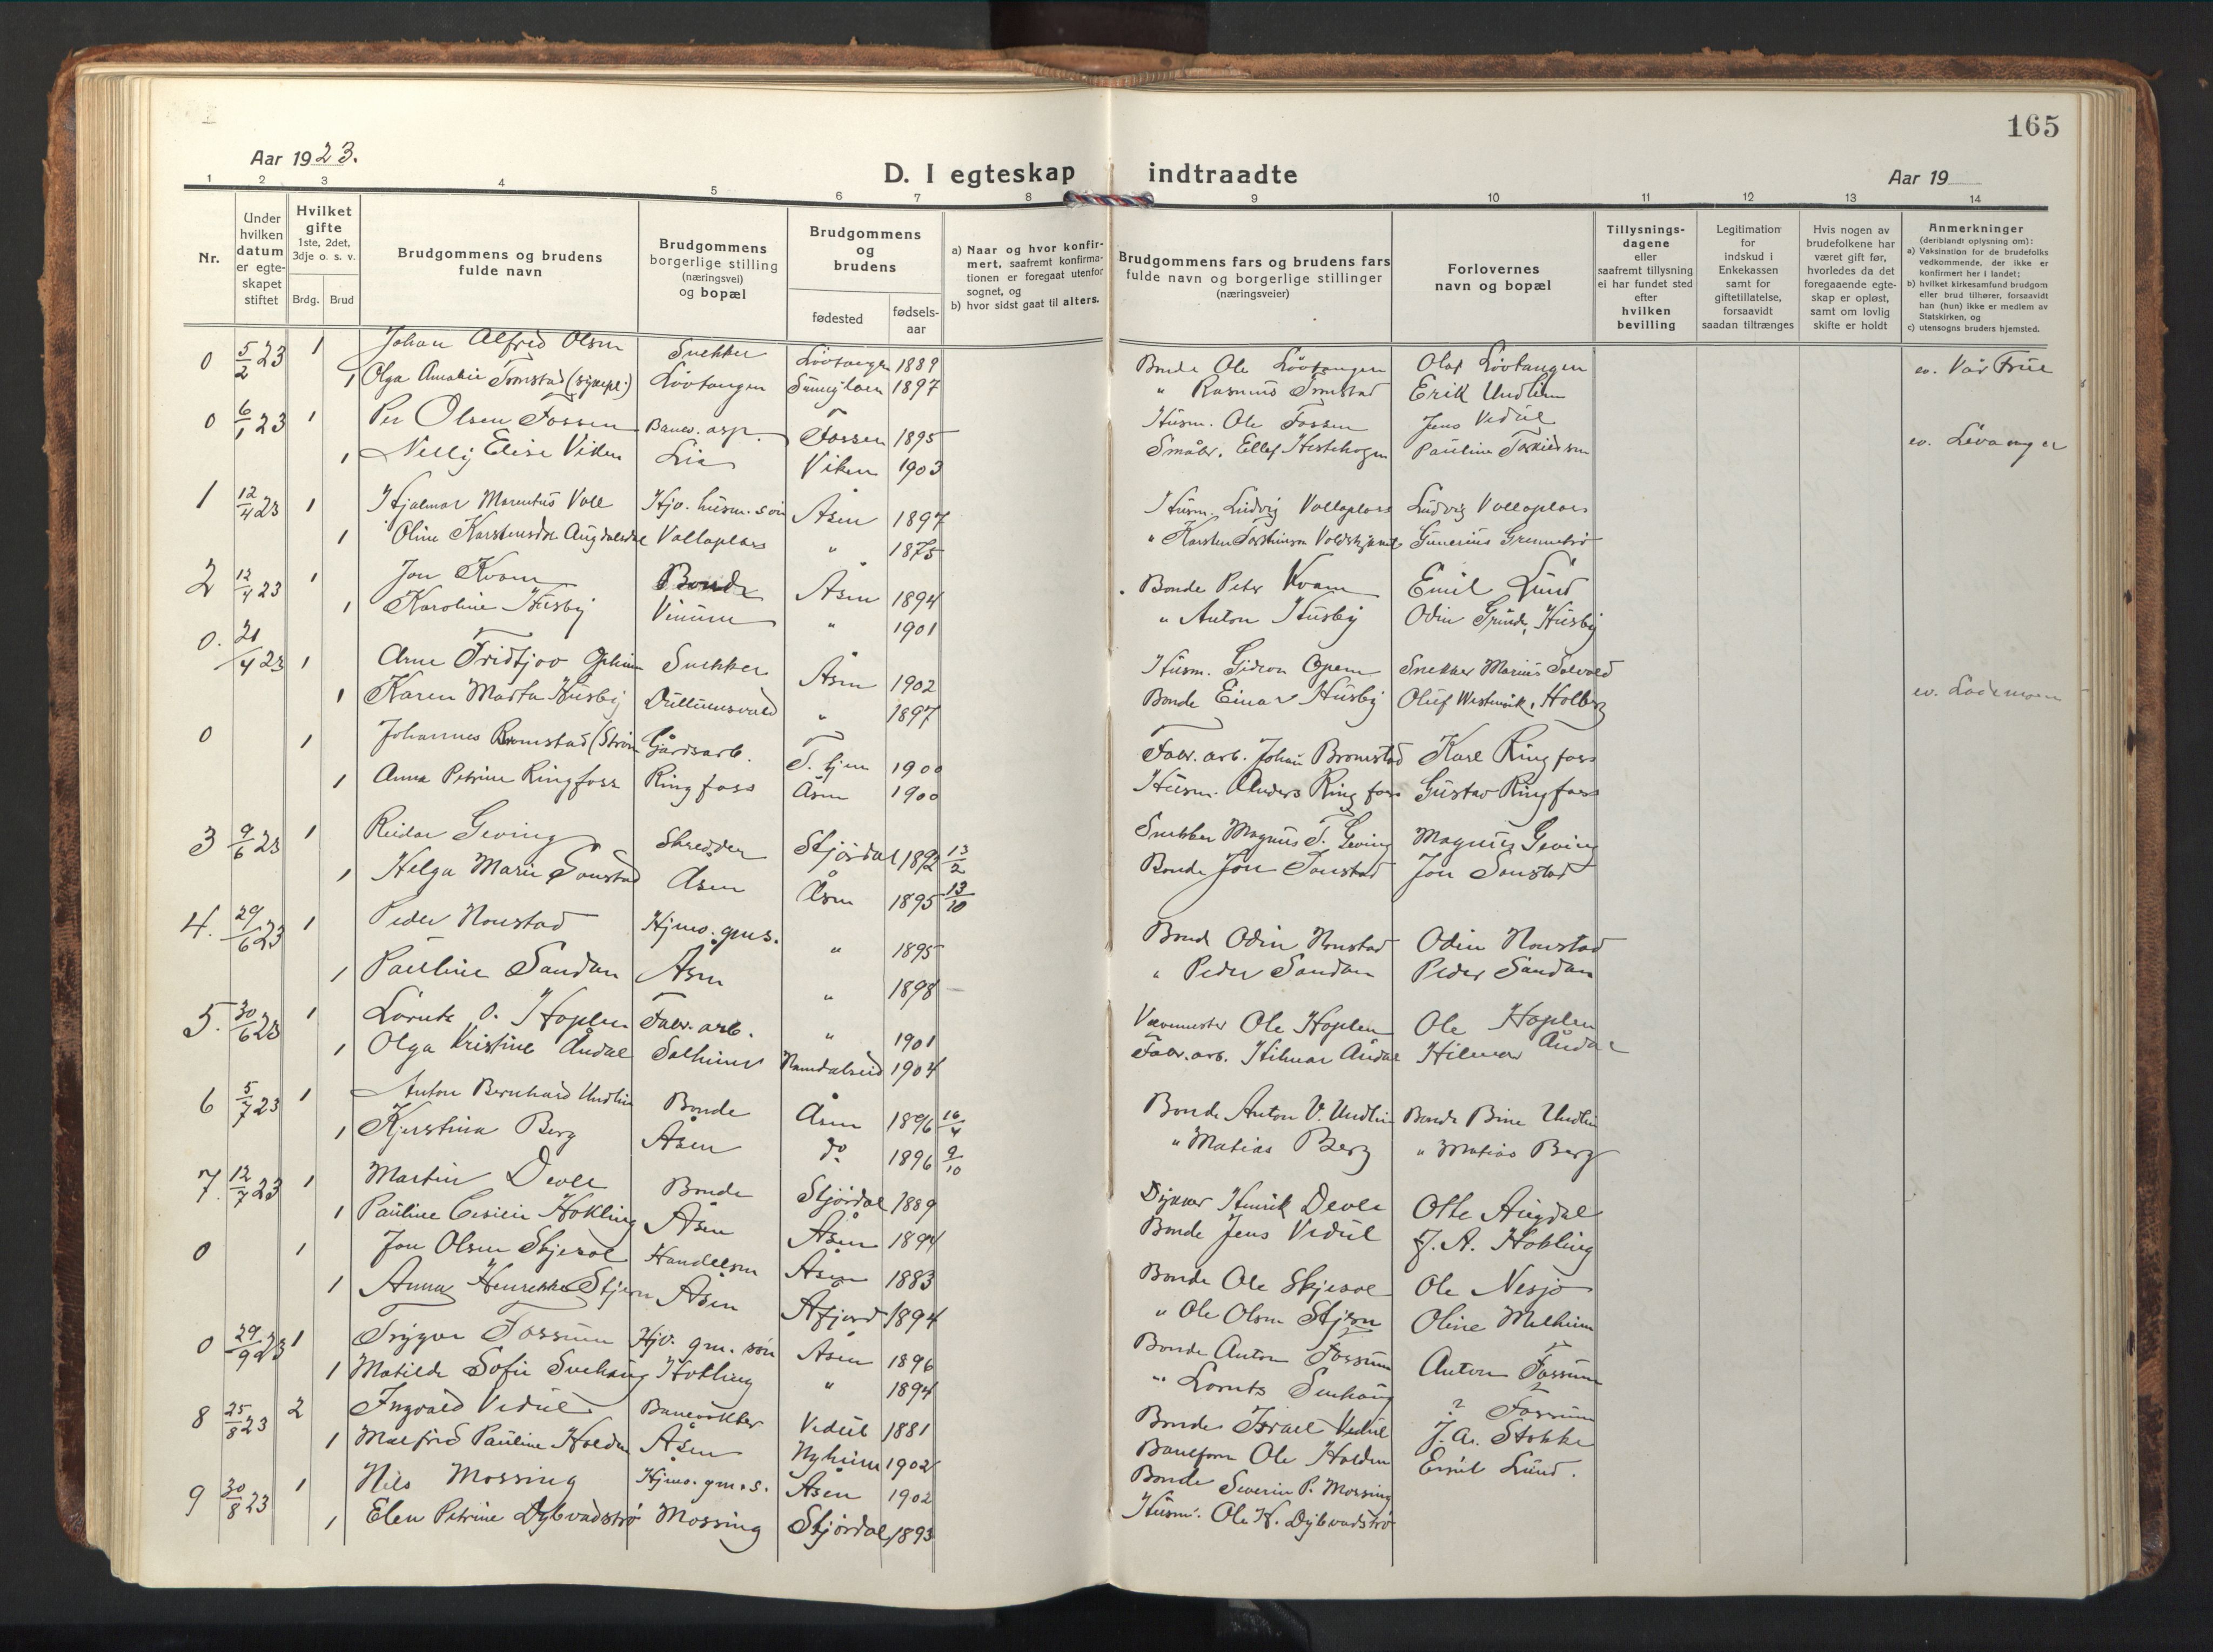 165
Aar 1923.
D. I egteskap indtraadte
Aar 19
1 2 3 4 5 6 7 8 9 10 11 12 13 14
Nr.
Under hvilken datum er egte-skapet stiftet
Hvilket gifte 1ste, 2det, 3dje o. s. v.
Brdg. Brud
Brudgommens og brudens fulde navn
Brudgommens borgerlige stilling (næringsvei) og bopæl
Brudgommens og brudens
fødested
fødsels-aar
a) Naar og hvor konfir-mert, saafremt konfirma-tionen er foregaat utenfor sognet, og
b) hvor sidst gaat til alters.
Brudgommens fars og brudens fars fulde navn og borgerlige stillinger (næringsveier)
Forlovernes navn og bopæl
Tillysnings-dagene eller saafremt tillysning ei har fundet sted efter hvilken bevilling
Legitimation for indskud i Enkekassen samt for giftetillatelse, forsaavidt saadan tiltrænges
Hvis nogen av brudefolkene har været gift før, hvorledes da det foregaaende egte-skap er opløst, samt om lovlig skifte er holdt
Anmerkninger (deriblandt oplysning om):
a) Vaksination for de brudefolks vedkommende, der ikke er konfirmert her i landet;
b) hvilket kirkesamfund brudgom eller brud tilhører, forsaavidt han (hun) ikke er medlem av Statskirken, og
c) utensogns bruders hjemsted.
0 5/2 23 1 Johan Alfred Olsen Snekker Lövtangen 1889 Bonde Ole Lövtangen Olaf Lövtangen ev. Vår Frue
1 Olga Amalie Tomstad Lövtangen 1897 " Rasmus Tomstad Erik Undlien
0 6/1 23 1 Per Olsen Fossen Banev. asp. Fossen 1895 Husm. Ole Fossen Jens Vedul ev. Levanger
1 Nelly Elise Viken Lia Viken 1903 Småbr. Ellef Hestehogen Pauline
1 12/4 23 1 Hjalmar Marentius Voll Hjv. husm. søn Åsen 1897 Husm. Ludvig Vollaplass Ludvig Vollaplass
1 Oline Karstensdtr Augdalsdal Vollaplass " 1875 " Karsten
2 12/4 23 1 Jon Kvam Bonde Åsen 1894 Bonde Peter Kvam Emil Lund
1 Karoline Husby Vinum " 1901 " Anton Husby Odin Husby
0. 21/4 23 1 Arne Fridtjov Snekker Åsen 1902 Husm. Gideon Opem Snekker Marius Solvold
1 Karen Marta Husby Dullumsvald " 1897 Bonde Einar Husby Oluf Westervik, Holberg ev. Lademoen
0 1 Johannes Bromstad Gårdsarb. 1900 Fabr. arb. Johan Bromstad Karl Ringfoss
1 Anna Petrine Ringfoss Ringfoss Åsen 1900 Husm. Anders Ringfoss Gustav Ringfoss
3 9/6 23 1 Reidar Geving Skredder Stjördal 1892 13/2 Snekker Magnus T. Geving Magnus Geving
1 Helga Marie Sonstad Åsen Åsen 1895 13/10 Bonde Jon Sonstad Jon Sonstad
4. 29/6 23 1 Peder Nonstad Hjmv. gms. " 1895 Bonde Odin Nonstad Odin Nonstad
1 Pauline Sandan Åsen " 1898 " Peder Sandan Peder Sandan
5. 30/6 23 1 Lornts O. Hoplen Fabr. arb. " 1901 Vævemester Ole Hoplen Ole Hoplen
1 Olga Kristine Åudal Solheim Namdalseid 1904 Fabr. arb. Hilmar Åudal Hilmar Åudal
6 5/7 23 1 Anton Bernhard Undlien Bonde Åsen 1896 16/4 Bonde Anton V. Undlien Bonde Undlien
1 Kjerstina Berg Åsen do 1896 9/10 " Matias Berg " Matias Berg
7. 12/7 23 1 Martin Devle Bonde Stjördal 1889 Henrik Devle Otte Augdal
1 Pauline Hokling Åsen Åsen 1894 Bonde Jens Vedul J. A. Hokling
0 1 Jon Olsen Skjesol Handelsm Åsen 1883 Bonde Ole Skjesol Ole Nesjö
1 Anna Henrikke Stjern Åsen Åfjord 1894 " Ole Olsen Stjern Oline Melhum
0 29/9 23 1 Trygve Fossum Hjv. gm. søn Åsen 1896 Bonde Anton Fossum Anton Fossum
1 Matilde Sofie Svehaug Hokling " 1894 " Lornts Svehaug ? Fossum
8 25/8 23 2 Ingvald Vedul Banevokter Vedul 1881 Bonde Israel Vedul J. A. Stokke
1 Malfrid Pauline Holden Åsen Nyheim 1902 Baneform Ole Holden Emil Lund.
9 30/8 23 1 Nils Mossing Hjmv. gm. s. Åsen 1902 Bonde Severin P. Mossing
1 Elen Petrine Dybvadstrø Mossing Stjördal 1893 Husm. Ole H. Dybvadstrø